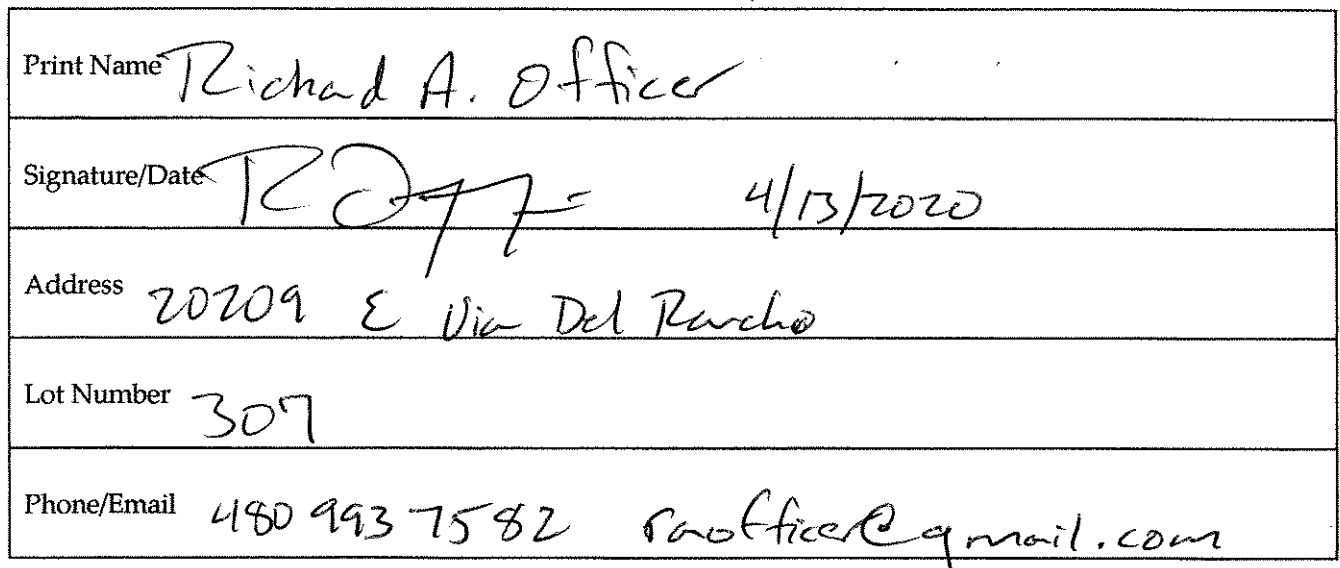 Print Name Richard A. Officer
Signature/Date 4/13/2020
Address 20209 E Via Del Rancho
Lot Number 307
Phone/Email 480 993 7582 raofficer@gmail.com